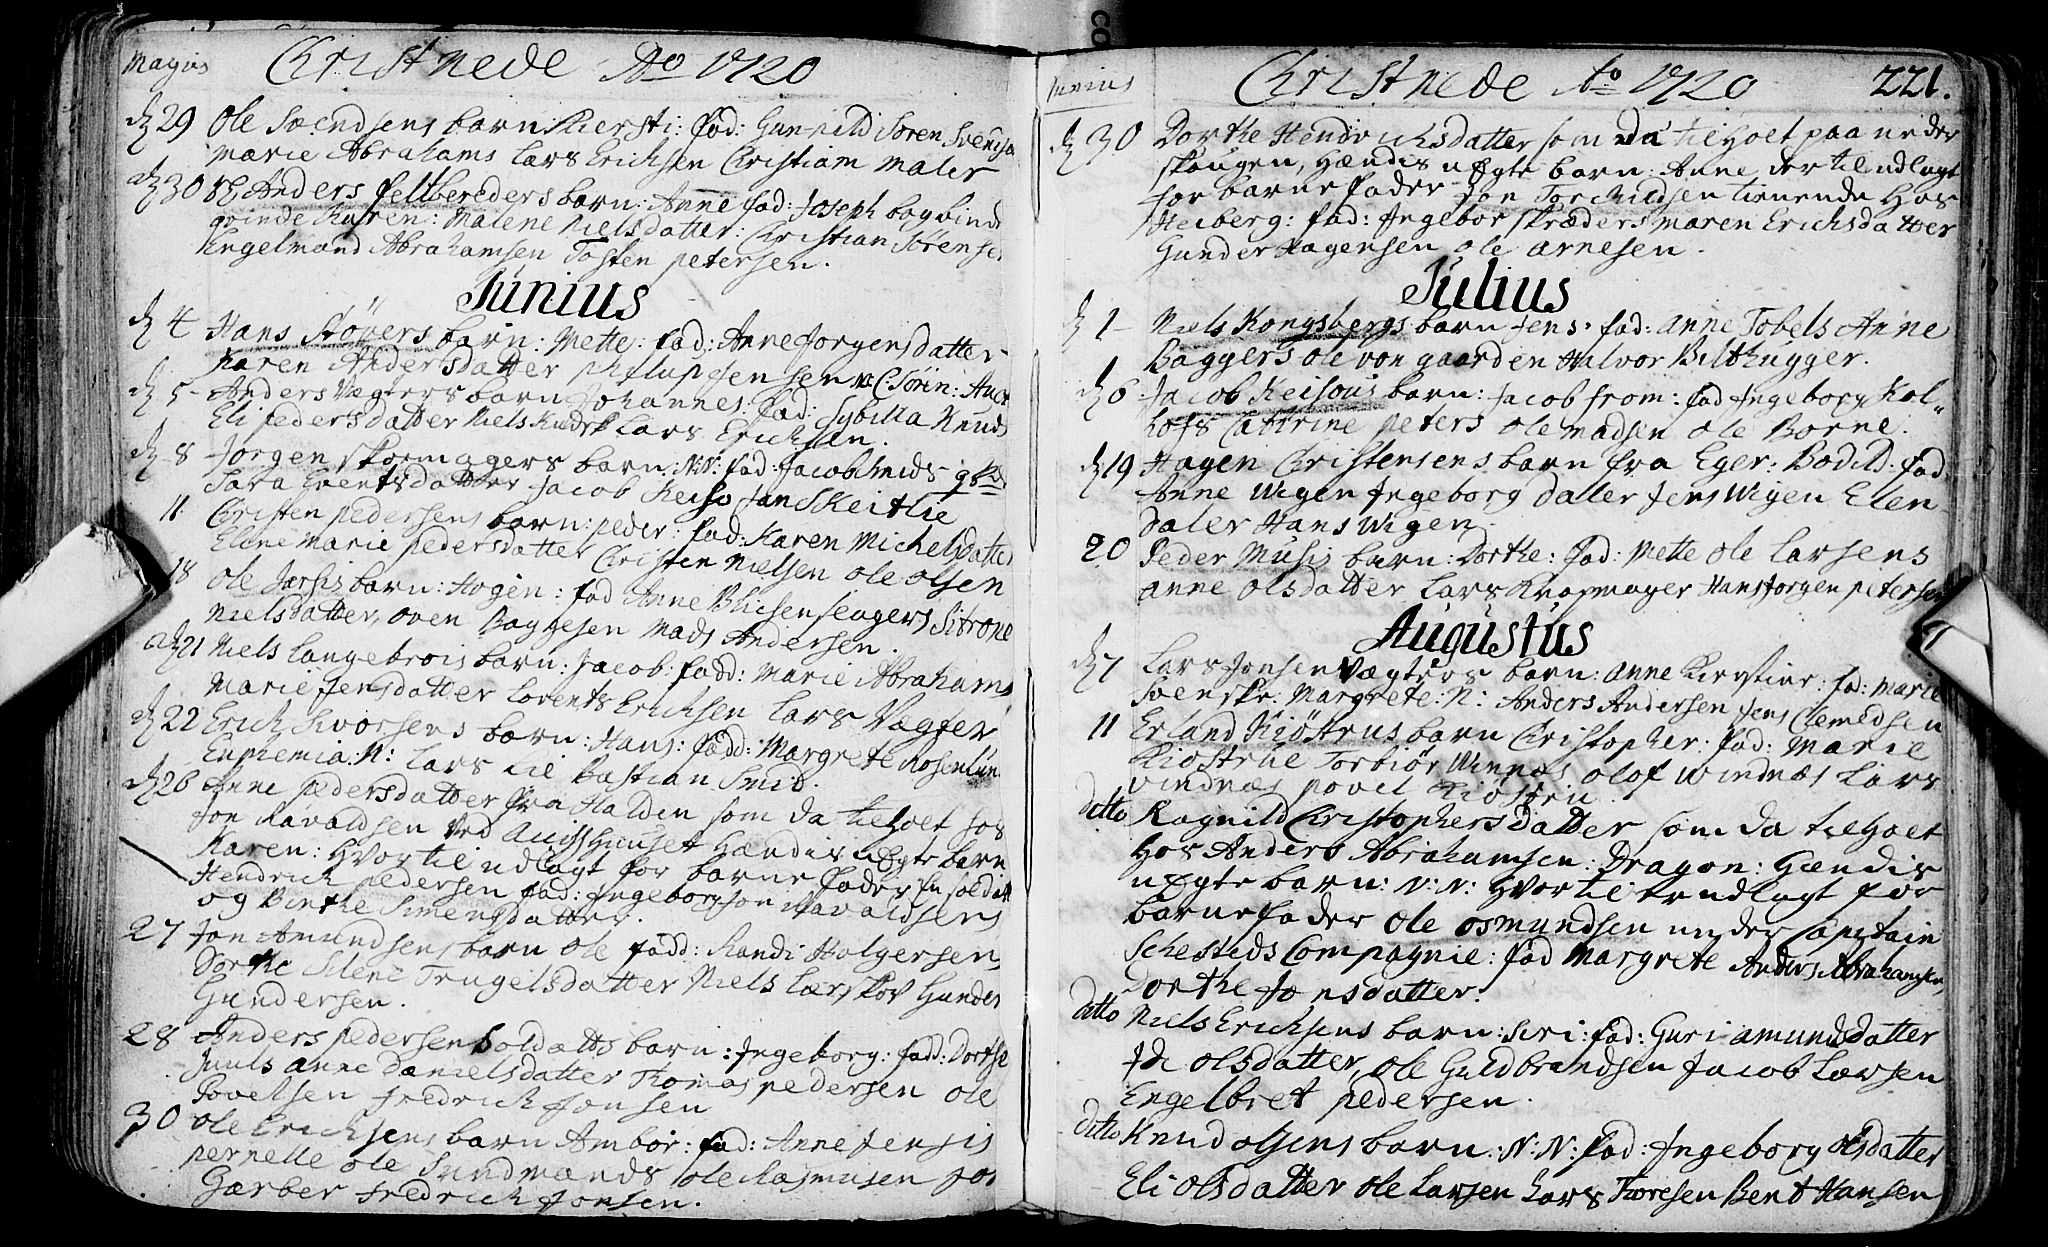 Magius Christnede Ao 1720
dg 29 Ole Svendsens barn Kiersti: fad: Gunnild Sören Svensen
Marie Abrahams Lars Ericksen Christiam Maler
dg 30 Anders feltbereders barn: Anne fad: Joseph bogbind
grinde Karen: Malene Nielsdatter: Christian Sörensen
Engelmand Abrahamsen Tosten petersen.
Junius
dg 4 Hans Stövers barn: Mette: fad: Anne Jorgensdatter
Karen Andersdatter Sörin:
dg 5 Anders Vægters barn Johannes: fad: Sybilla Knuds
Eli pedersdatter Niels Lars Ericksen.
dg 8 Jorgen skoemagers barn: N:N: fad: Jacob smids
Sara Evertsdatter Jacob Keiso Jan Skeitlie
11 Christen pedersens barn: peder: fad: Karen Michelsdatter
Elene Marie pedersdatter Christen Nielsen ole olsen
18 Ole barn: Hogen: fad Anne Sitrone
Nielsdatter, oven Baggesen Mads Andersen.
dg 21 Niels Langebrois barn: Jacob: fadd: Marie Abrahams
Marie Jensdatter Lorents Ericksen Lars Vægter
dg 22 Erick Ivorsens barn: Hans: fadd: Margrete Rosenlun
Euphemia: N: Lars Lie Bastian Smid.
dg 26 Anne pedersdatter fra Halden som da tilholt hos
Jon Havaldsen ved hændis uEgte barn
Karen: Hvortil udlagt for barne fader En soldat
Hendrick pedersen fad: Ingeborg Jon Havaldsens
og Birthe Simensdatter.
27 Jon Amundsens barn Ole fadd: Randi Holgersen,
Dorthe Selene Trugelsdatter Niels Lærskov Gunder
Gundersen.
28 Anders pedersen Soldatts barn: Ingeborg: fadd: Dorthe
Juuls anne Danielsdatter Thomas pedersen ole
Povelsen fredrick Jonsen
30 Ole Ericksens barn Ambör: fad: Anne Jensis
pernelle ole Sundmænds ole Rasmusen Jos
Garber fredrick Jonsen.
Junius Christnede Ao 1720 221.
dg 30 Dorthe Hendricksdatter som da tilholt paa neder
skougen, hændis uEgte barn: Anne der til udlagt
for barne fader Jon Torckildsen tienende Hos
Heiberg: fad: Ingebor skræders maren Ericksdatter
Gunder Hagensen ole arnesen.
Julius
dg 1 Niels Kongsbergs barn Jens: fad: anne Tobels Anne
Baggers ole von gaarden Halvor Bilthugger.
dg 6 Jacob Keisous barn: Jacob from: fad Ingeborg Kol„
Kofs Catrine peters ole madsen ole Borne.
dg 19 Hagen Christensens barn fra Eger: Bodild: fad
Anne Wigen Ingeborg daller Jens Wigen Elen
daler Hans Wigen.
20 Peder Musis barn: Dorthe: fad: Mette ole Larsens
anne olsdatter Lars Knapmager Hans Jorgen petersen
Augustus
dg 7 Lars Jonsen Vægters barn: anne Kierstine: fad: marie
Svenske: Margrete: N: Anders Andersen Jens Clemedsen
11 Erland Kiöstrus barn Christopher: fad: Marie
Kiöstrue Torbiör Winnes olof windnæs Lars
vindnæs povel Kiöstru.
ditto Ragnild Christophersdatter som da tilholt
Hos Anders Abrahamsen: Dragon: hændis
uægte barn: N: N: Hvortil er udlagt for
barnefader Ole osmundsen under Captain
Schesteds Compagnie: fad Margrete Anders Abrahamsen,
Dorthe Jonsdatter.
ditto Niels Ericksens barn: Siri: fad: Guri amundsdatter
Ide olsdatter, ole Guldbrandsen Jacob Larsen
Engelbret pedersen.
Ditto Knud olsens barn: N: N: fad: Ingeborg olsdatter
Eli olsdatter ole Larsen Lars Thoresen Bent Hansen